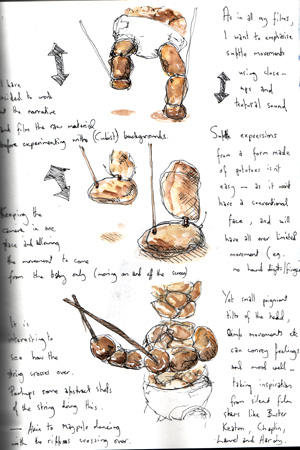 As in all my films,
I want to emphasise
subtle movements
using close-
ups and
textural sound
I have
decided to work
out the narrative
and film the raw material
before experimenting with (Cubist) backgrounds.
Subtle expressions
from a form made
of potatoes isn't
easy — as it wont
have a conventional
face, and will
have all over limited
movement (eg.
no hand digits/fingers
Keeping the
camera in one
place and allowing
the movement to come
from the body only (moving in and of the screen)
Yet small poignant
tilts of the head,
limb movements etc
can convey feelings
and mood well —
taking inspiration
from silent film
stars like Buster
Keaton, Chaplin,
Laurel and Hardy.
It is
interesting to
see how the
string crosses over.
Perhaps some abstract shots
of the string doing this.
— Akin to maypole dancing
with the ribbons crossing over.